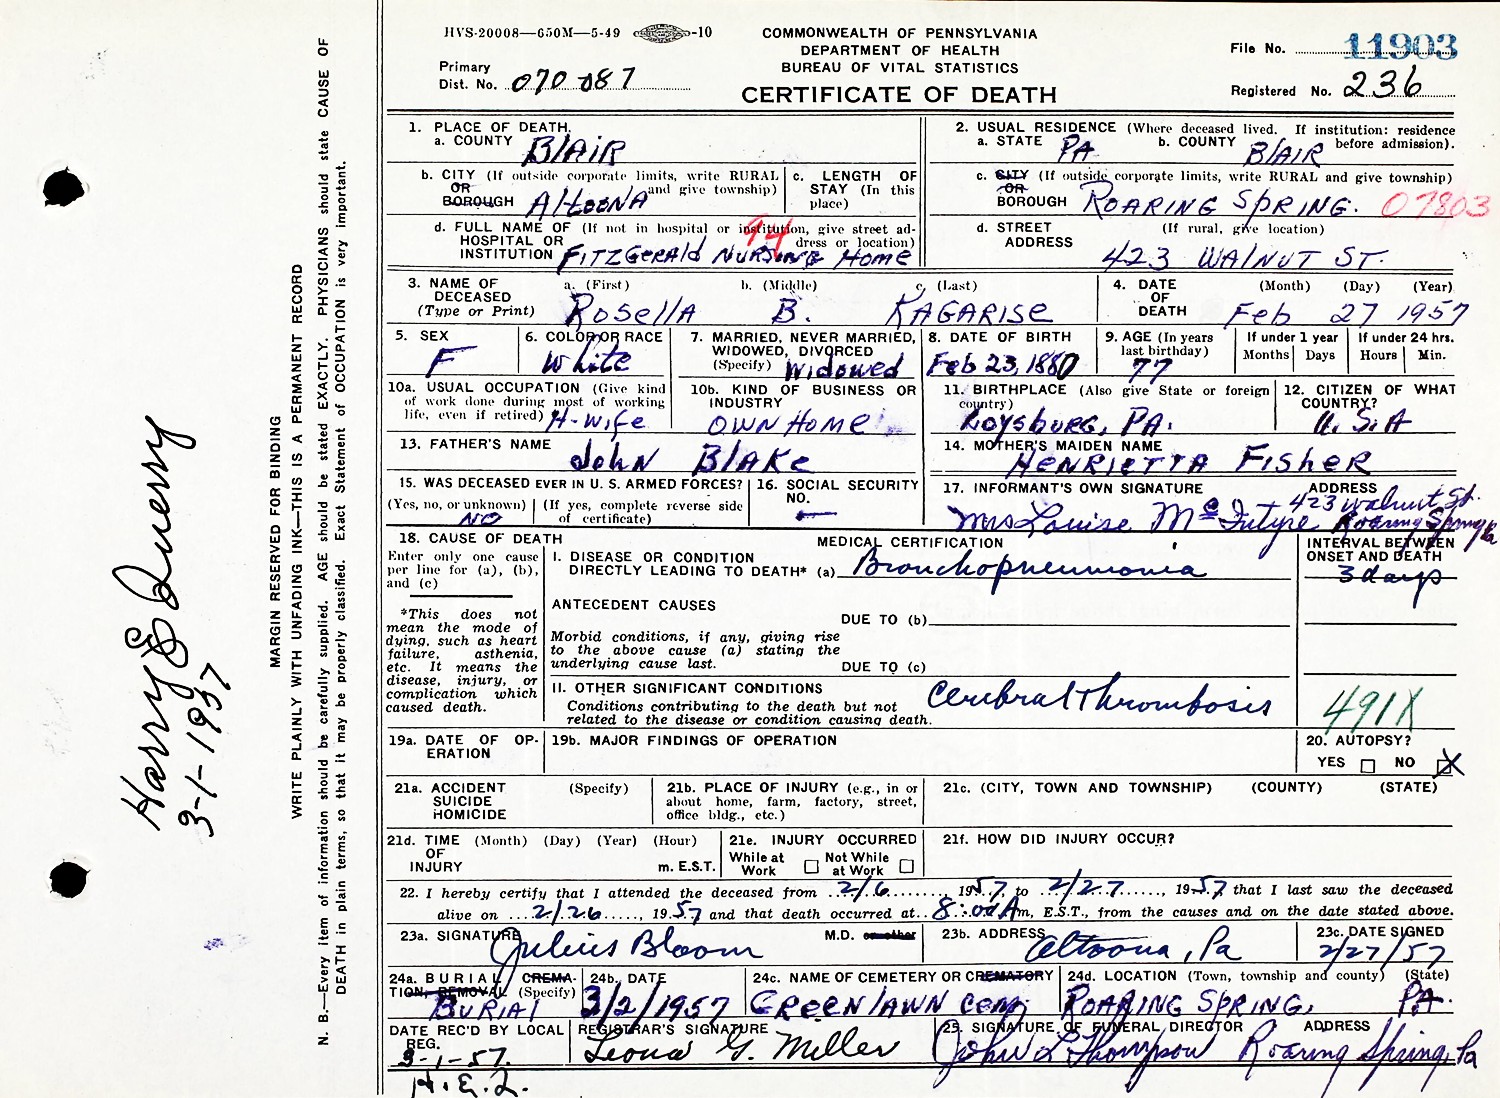 HVS-20008—650M—5-49 -10
COMMONWEALTH OF PENNSYLVANIA
DEPARTMENT OF HEALTH
BUREAU OF VITAL STATISTICS
CERTIFICATE OF DEATH
Primary
Dist. No. 070 087
File No. 11903
Registered No. 236
1. PLACE OF DEATH.
a. COUNTY Blair
2. USUAL RESIDENCE (Where deceased lived. If institution: residence before admission).
a. STATE PA b. COUNTY Blair
b. CITY (If outside corporate limits, write RURAL
OR and give township)
BOROUGH Altoona
c. LENGTH OF STAY (In this place)
c. CITY (If outside corporate limits, write RURAL and give township)
OR
BOROUGH Roaring Spring. 07803
d. FULL NAME OF (If not in hospital or institution, give street address or location)
HOSPITAL OR
INSTITUTION Fitzgerald Nursing Home
94
d. STREET ADDRESS (If rural, give location)
423 Walnut St.
3. NAME OF DECEASED (Type or Print)
a. (First) b. (Middle) c. (Last)
Rosella B. Kagarise
4. DATE OF DEATH (Month) (Day) (Year)
Feb 27 1957
5. SEX F
6. COLOR OR RACE White
7. MARRIED, NEVER MARRIED, WIDOWED, DIVORCED (Specify) Widowed
8. DATE OF BIRTH Feb 23, 1880
9. AGE (In years last birthday) 77
If under 1 year Months Days
If under 24 hrs. Hours Min.
10a. USUAL OCCUPATION (Give kind of work done during most of working life, even if retired) H-Wife
10b. KIND OF BUSINESS OR INDUSTRY Own Home
11. BIRTHPLACE (Also give State or foreign country) Loysburg, PA.
12. CITIZEN OF WHAT COUNTRY? U.S.A
13. FATHER'S NAME John Blake
14. MOTHER'S MAIDEN NAME Henrietta Fisher
15. WAS DECEASED EVER IN U. S. ARMED FORCES?
(Yes, no, or unknown) (If yes, complete reverse side of certificate)
No
16. SOCIAL SECURITY NO. —
17. INFORMANT'S OWN SIGNATURE ADDRESS
Mrs Louise McIntyre 423 Walnut St. Roaring Spring Pa
18. CAUSE OF DEATH
Enter only one cause per line for (a), (b), and (c)
*This does not mean the mode of dying, such as heart failure, asthenia, etc. It means the disease, injury, or complication which caused death.
MEDICAL CERTIFICATION
INTERVAL BETWEEN ONSET AND DEATH
I. DISEASE OR CONDITION
DIRECTLY LEADING TO DEATH* (a) Bronchopneumonia 3 days
ANTECEDENT CAUSES
DUE TO (b)
Morbid conditions, if any, giving rise to the above cause (a) stating the underlying cause last.
DUE TO (c)
II. OTHER SIGNIFICANT CONDITIONS
Conditions contributing to the death but not related to the disease or condition causing death.
Cerebral thrombosis
491X
19a. DATE OF OPERATION
19b. MAJOR FINDINGS OF OPERATION
20. AUTOPSY?
YES NO X
21a. ACCIDENT SUICIDE HOMICIDE (Specify)
21b. PLACE OF INJURY (e.g., in or about home, farm, factory, street, office bldg., etc.)
21c. (CITY, TOWN AND TOWNSHIP) (COUNTY) (STATE)
21d. TIME OF INJURY (Month) (Day) (Year) (Hour) m. E.S.T.
21e. INJURY OCCURRED
While at Work Not While at Work
21f. HOW DID INJURY OCCUR?
22. I hereby certify that I attended the deceased from 2/6, 1957, to 2/27, 1957 that I last saw the deceased
alive on 2/26, 1957 and that death occurred at 8:00 Am, E.S.T., from the causes and on the date stated above.
23a. SIGNATURE Julius Bloom M.D. or other
23b. ADDRESS Altoona, Pa
23c. DATE SIGNED 2/27/57
24a. BURIAL CREMATION, REMOVAL (Specify) Burial
24b. DATE 3/2/1957
24c. NAME OF CEMETERY OR CREMATORY Greenlawn Cem.
24d. LOCATION (Town, township and county) (State)
Roaring Spring, PA.
DATE REC'D BY LOCAL REG. 3-1-57.
H.E.Q.
REGISTRAR'S SIGNATURE Leona G. Miller
25. SIGNATURE OF FUNERAL DIRECTOR ADDRESS
John L Thompson Roaring Spring, Pa
MARGIN RESERVED FOR BINDING
WRITE PLAINLY WITH UNFADING INK—THIS IS A PERMANENT RECORD
N. B.—Every item of information should be carefully supplied. AGE should be stated EXACTLY. PHYSICIANS should state CAUSE OF
DEATH in plain terms, so that it may be properly classified. Exact Statement of OCCUPATION is very important.
Harry E Querry
3-1-1957